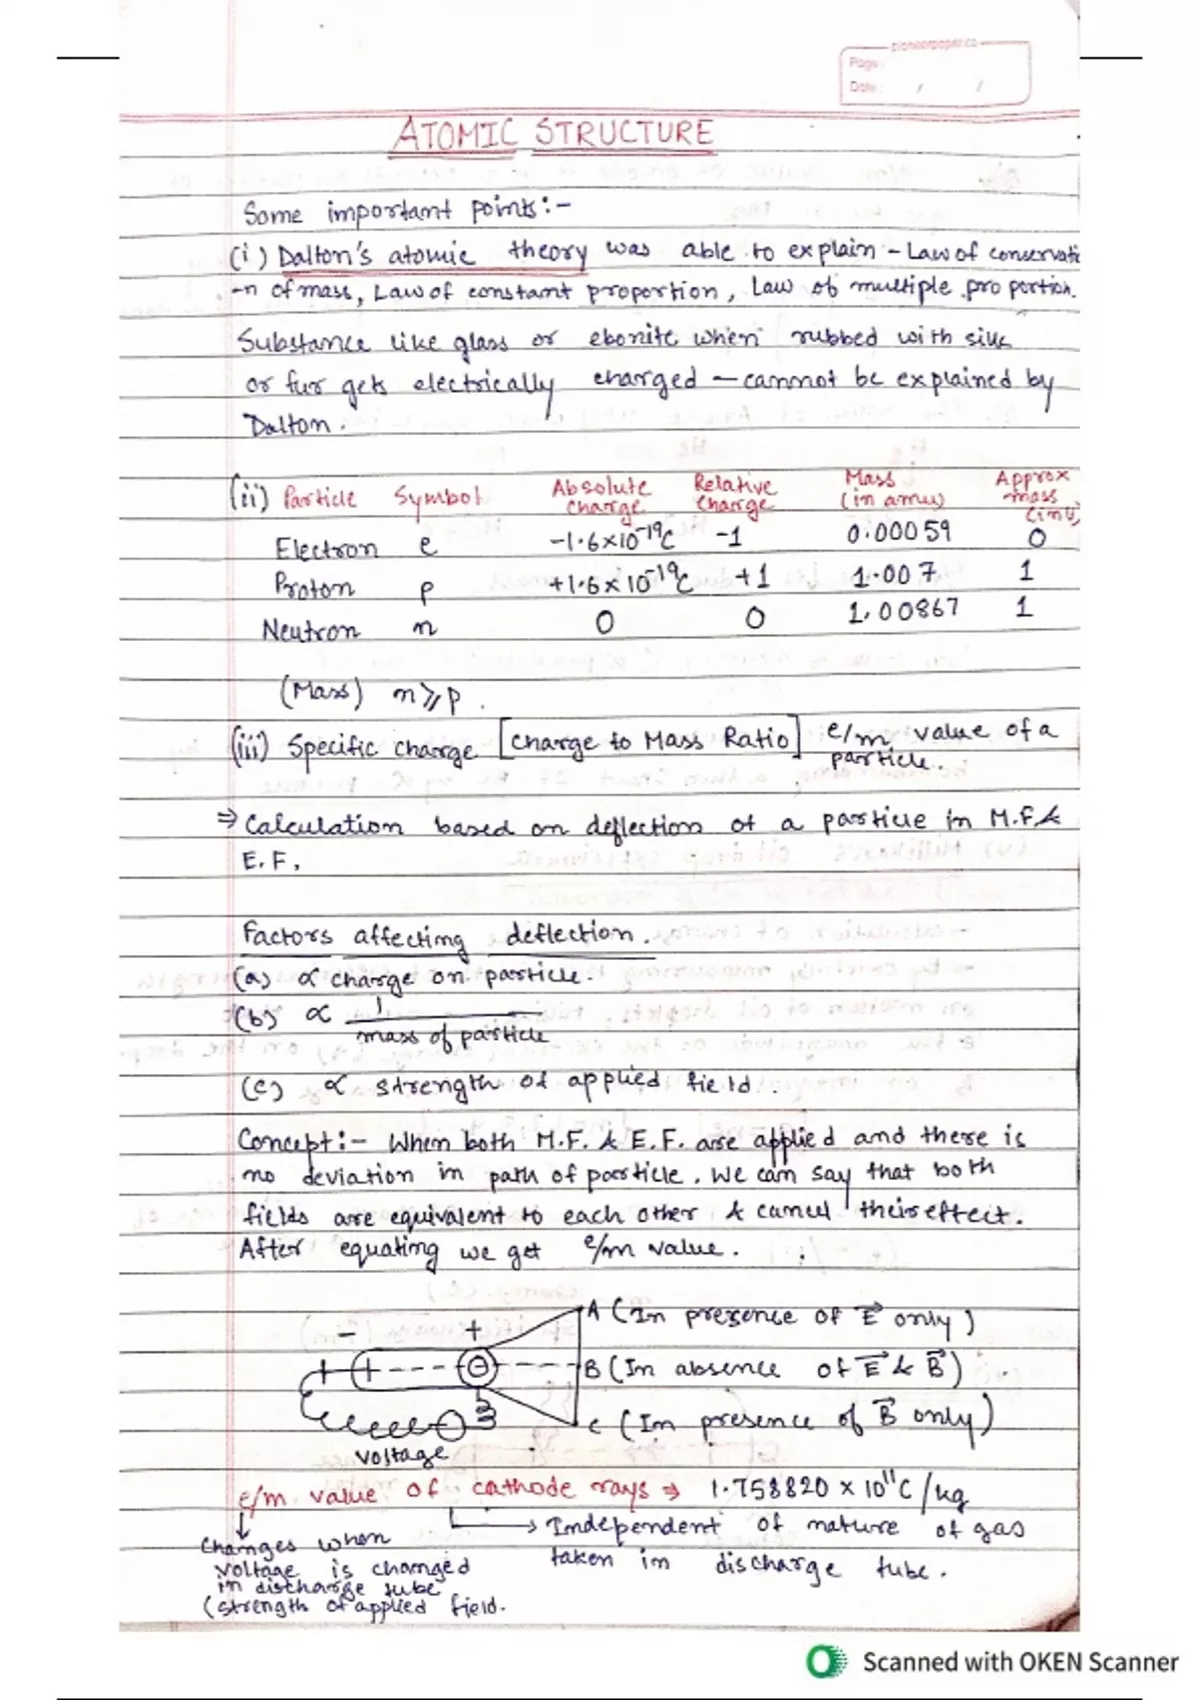 pioneerpaper.co
Page:
Date: / /
ATOMIC STRUCTURE
Some important points:-
(i) Dalton's atomic theory was able to explain - Law of conservati
-n of mass, Law of constant proportion, Law of multiple proportion.
Substance like glass or ebonite when rubbed with silk
or fur gets electrically charged — cannot be explained by
Dalton.
(ii) Particle Symbol Absolute charge Relative charge Mass (in amu) Approx mass (in u)
Electron e -1.6×10⁻¹⁹C -1 0.00059 0
Proton p +1.6×10⁻¹⁹C +1 1.007 1
Neutron n 0 0 1.00867 1
(Mass) n⩾p.
(iii) Specific charge [Charge to Mass Ratio] e/m value of a particle.
⇒ Calculation based on deflection of a particle in M.F. &
E.F.
Factors affecting deflection.
(a) ∝ charge on particle.
(b) ∝ 1/mass of particle
(c) ∝ strength of applied field.
Concept:- When both M.F. & E.F. are applied and there is
no deviation in path of particle. We can say that both
fields are equivalent to each other & cancel their effect.
After equating we get e/m value.
A (In presence of E⃗ only)
- +
B (In absence of E⃗ & B⃗)
C (In presence of B⃗ only)
voltage
e/m value of cathode rays ⇒ 1.758820 × 10¹¹ C/kg
→ Independent of nature of gas
taken in discharge tube.
Changes when
voltage is changed
in discharge tube
(strength of applied field.
Scanned with OKEN Scanner